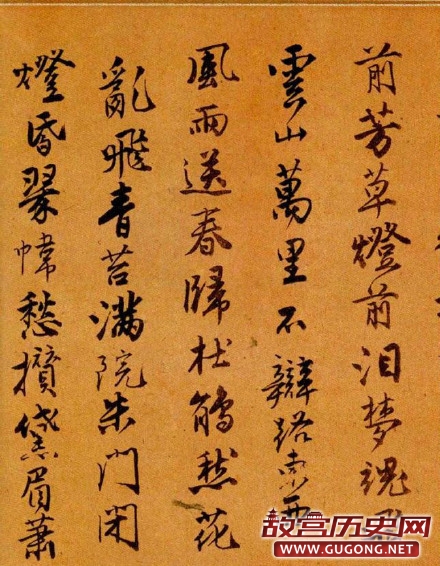 前芳草燈前泪夢魂
雲山萬里不辯路東西
風雨送春歸杜鵑愁花
亂飛青苔滿院朱門閉
燈昏翠幃愁攢黛眉蕭
故宫历史网
WWW.GUGONG.NET